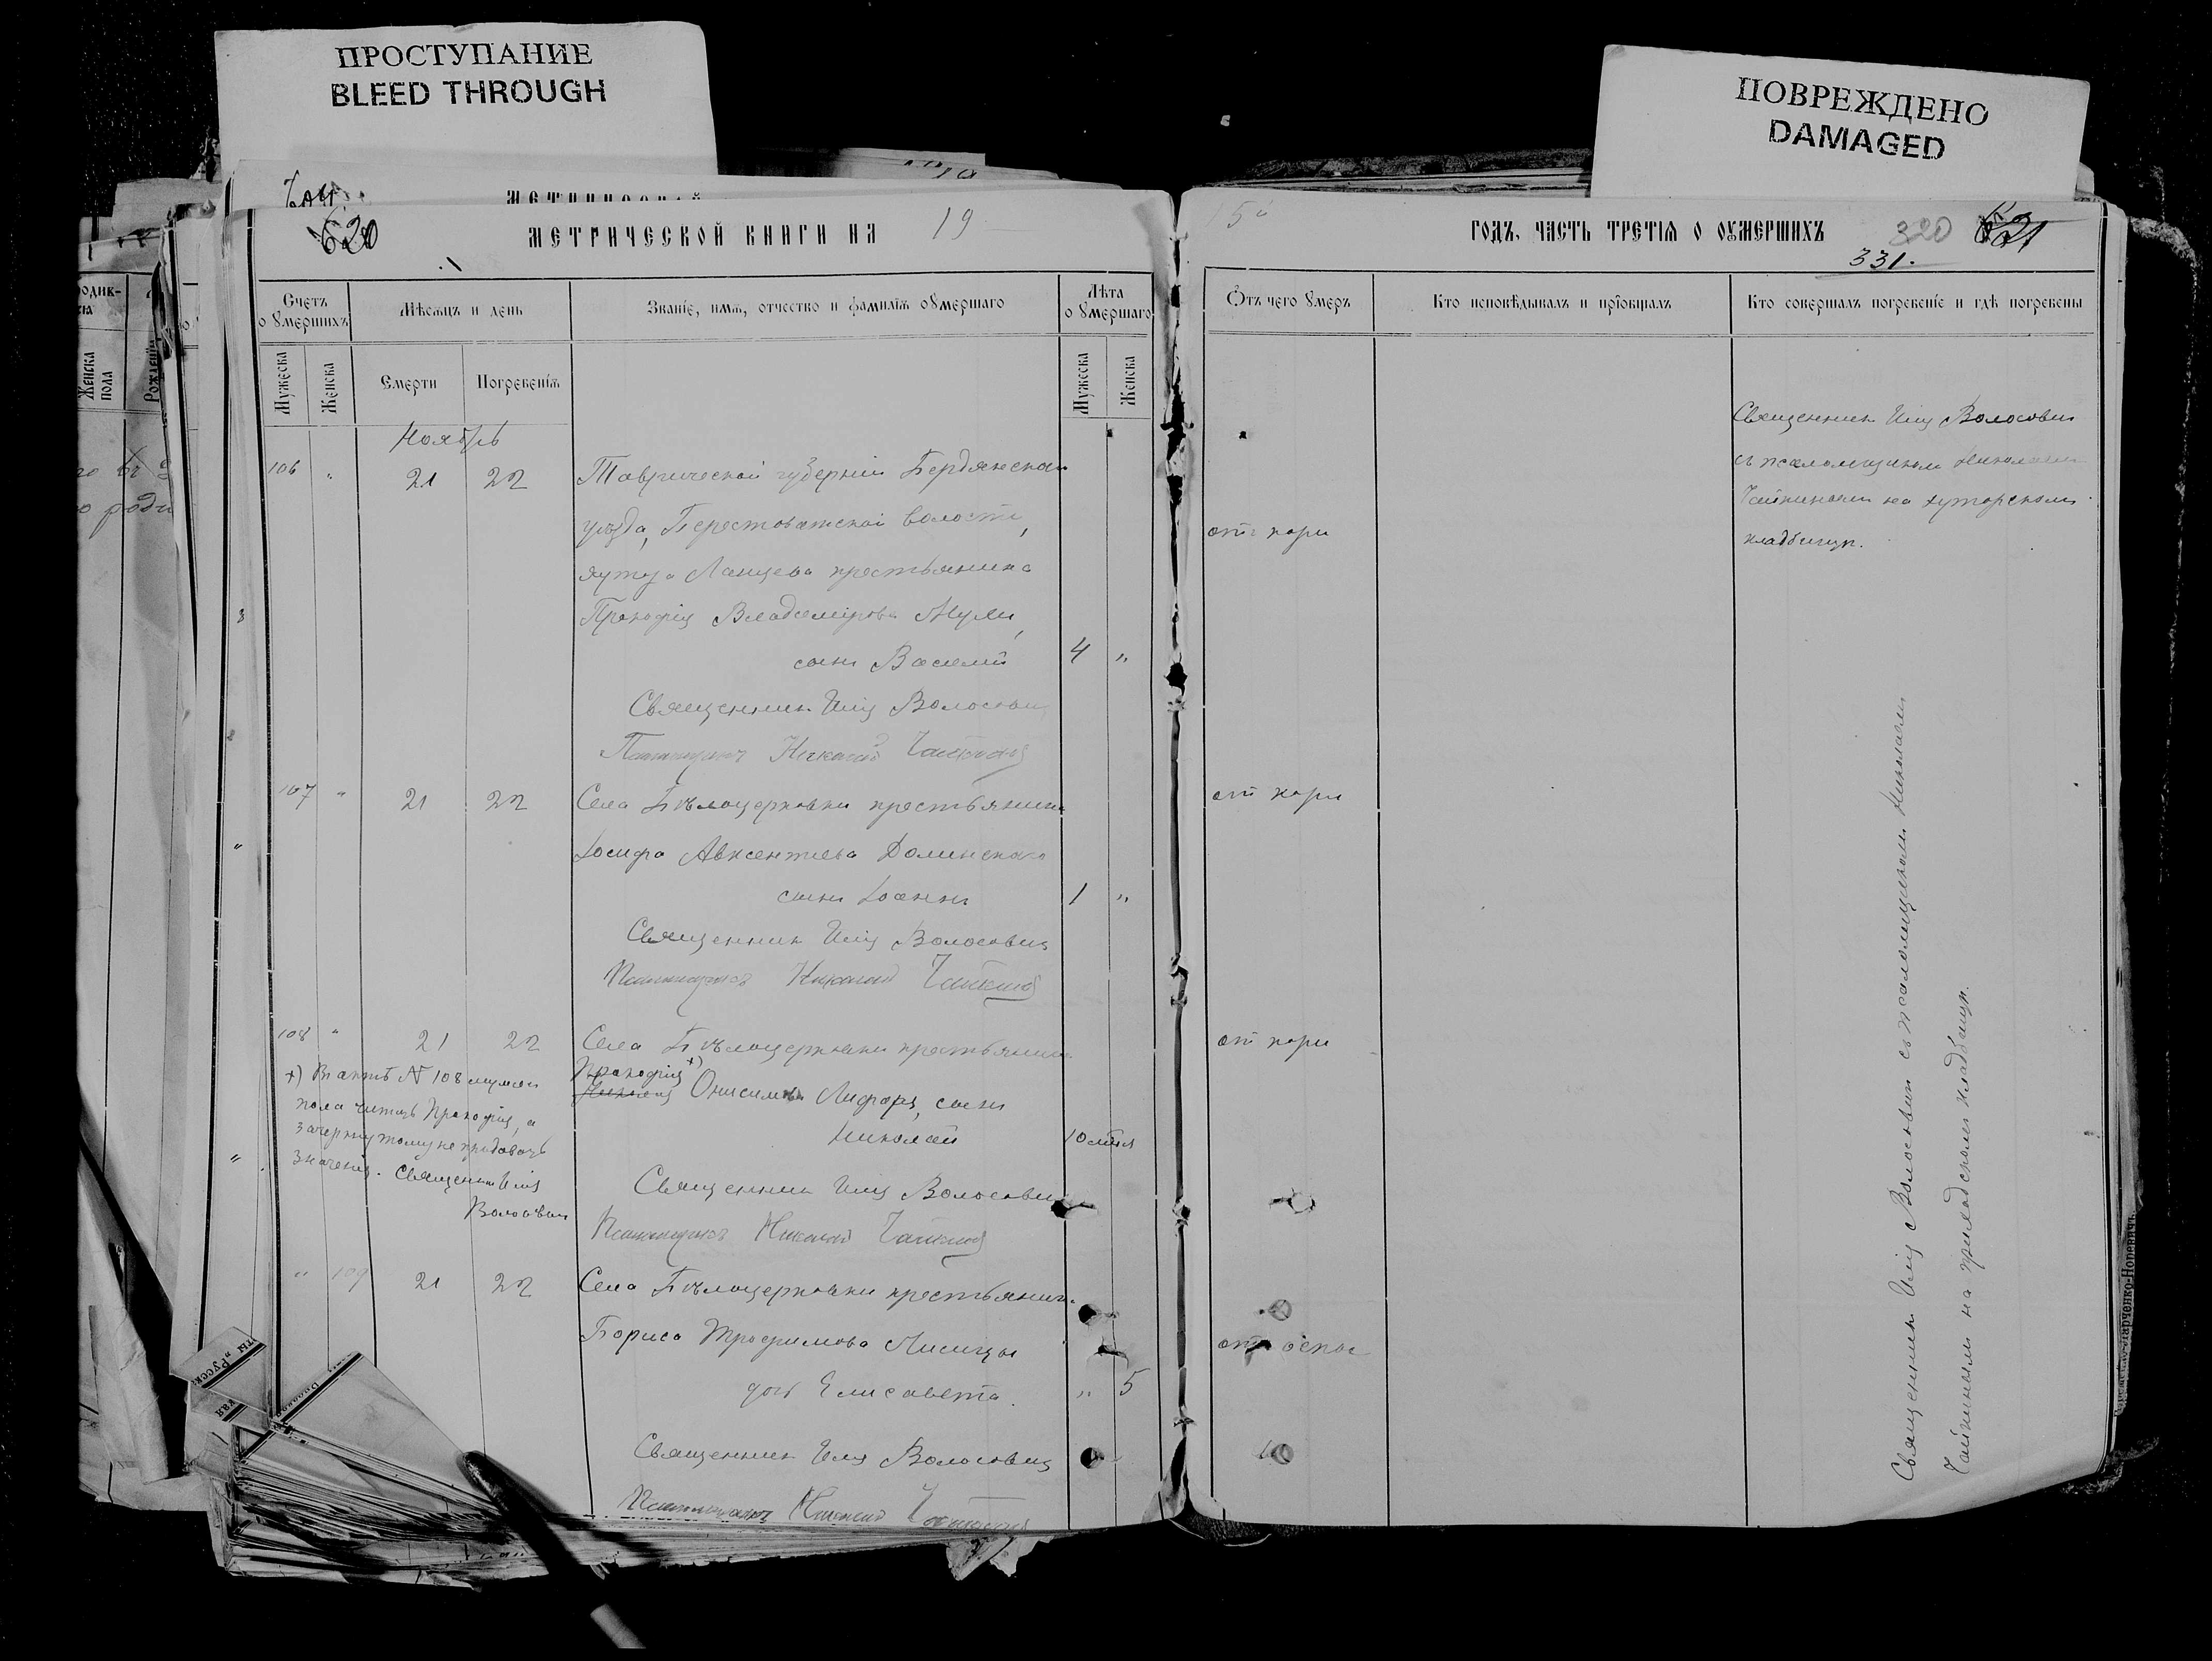 ПРОСТУПАНИЕ
BLEED THROUGH
ПОВРЕЖДЕНО
DAMAGED
620
МЕТРИЧЕСКОЙ КНИГИ НА 19
Счетъ о умершихъ
Мѣсяцъ и день
Званіе, имя, отчество и фамилія умершаго
Лѣта о умершаго
Мужеска
Женска
Смерти
Погребенія
Мужеска
Женска
Ноябрь
106 " 21 22 Таврической губерніи Бердянскаго
уѣзда, Берестоватской волости,
хутора Ланцева крестьянина
Прокофія Владимірова Жули,
сынъ Василій 4 "
Священникъ Илія Волосовичъ
Псаломщикъ Николай Чайкинъ
107 " 21 22 Села Бѣлоцерковки крестьянина
Іосифа Авксентіева Долинскаго
сынъ Іоаннъ 1 "
Священникъ Илія Волосовичъ
Псаломщикъ Николай Чайкинъ
108 " 21 22 Села Бѣлоцерковки крестьянина
Прокофія +)
Онисимова Лифаря, сынъ
Николай 10 мѣся
Священникъ Илія Волосовичъ
Псаломщикъ Николай Чайкинъ
+) Въ актѣ № 108 мужск
пола читать Прокофія, а
зачеркнутому не придавать
значенія. Священникъ Илія
Волосовичъ
" 109 21 22 Села Бѣлоцерковки крестьянина
Бориса Трофимова Лисицы
дочь Елисавета. " 5
Священникъ Илія Волосовичъ
Псаломщикъ Николай Чайкинъ
5
ГОДЪ, ЧАСТЬ ТРЕТІЯ О УМЕРШИХЪ
320
621
331.
Отъ чего умеръ
Кто исповѣдывалъ и пріобщалъ
Кто совершалъ погребеніе и гдѣ погребены
отъ кори
отъ кори
отъ кори
отъ оспы
Священникъ Илія Волосовичъ
съ псаломщикомъ Николаемъ
Чайкинымъ на хуторскомъ
кладбищѣ.
Священникъ Илія Волосовичъ съ псаломщикомъ Николаемъ
Чайкинымъ на приходскомъ кладбищѣ.